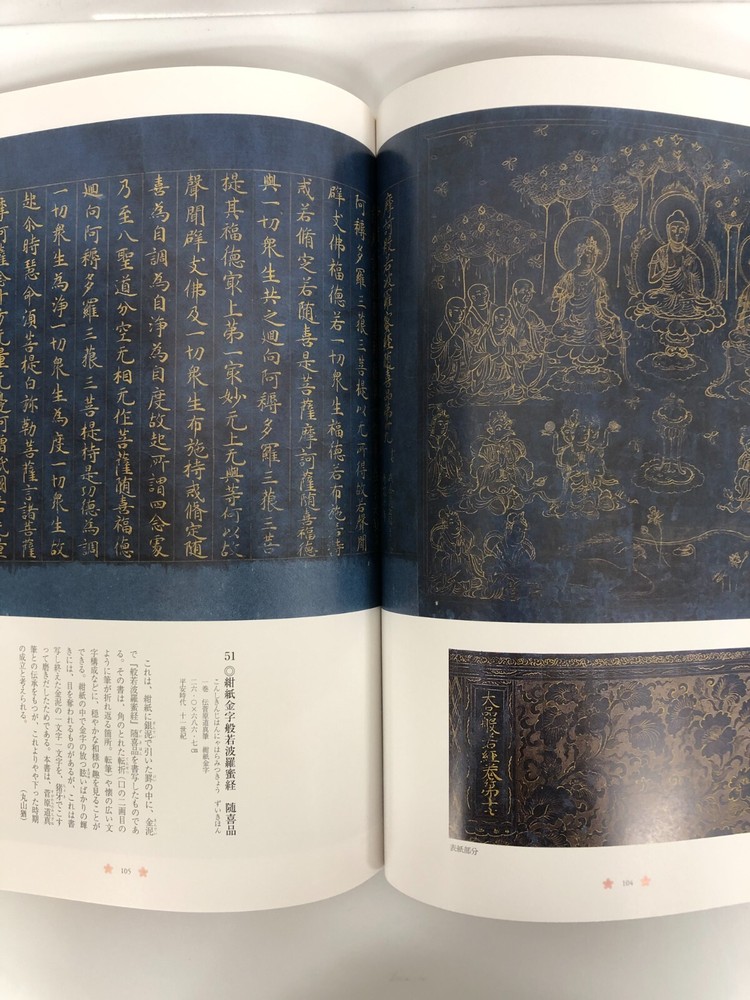 大品般若經卷第十七
表紙部分
104
阿耨多羅三藐三菩提以无所得故若聲聞
辟支佛福德若一切衆生福德若布施若持
戒若脩定若随喜是菩薩摩訶薩随喜福德
與一切衆生共之迴向阿耨多羅三藐三菩
提其福德冣上第一冣妙无上无與等何以故
聲聞辟支佛及一切衆生布施持戒脩定随
喜為自調為自淨為自度故起所謂四念處
乃至八聖道分空无相无作菩薩随喜福德
迴向阿耨多羅三藐三菩提持是功德為調
一切衆生為淨一切衆生為度一切衆生故
起尒時慧命湏菩提白弥勒菩薩言諸菩薩
51◎紺紙金字般若波羅蜜経　随喜品
こんしきんじはんにゃはらみつきょう　ずいきほん
一巻　伝菅原道真筆　紺紙金字
二六・〇×六八六・七㎝
平安時代　十一世紀
これは、紺紙に銀泥で引いた罫の中に、金泥
で『般若波羅蜜経』随喜品を書写したものであ
る。その書は、角のとれた転折（口の二画目の
ように筆が折れ返る箇所。転筆）や懐の広い文
字構成などに、穏やかな和様の趣を見ることが
できる。紺紙の中で金字の放つ眩いばかりの輝
きには、目を奪われるものがあるが、これは書
写し終えた金泥の一文字一文字を、猪牙でこす
って磨きだしたためである。本書は、菅原道真
筆との伝承をもつが、これよりやや下った時期
の成立と考えられる。
（丸山猶）
105